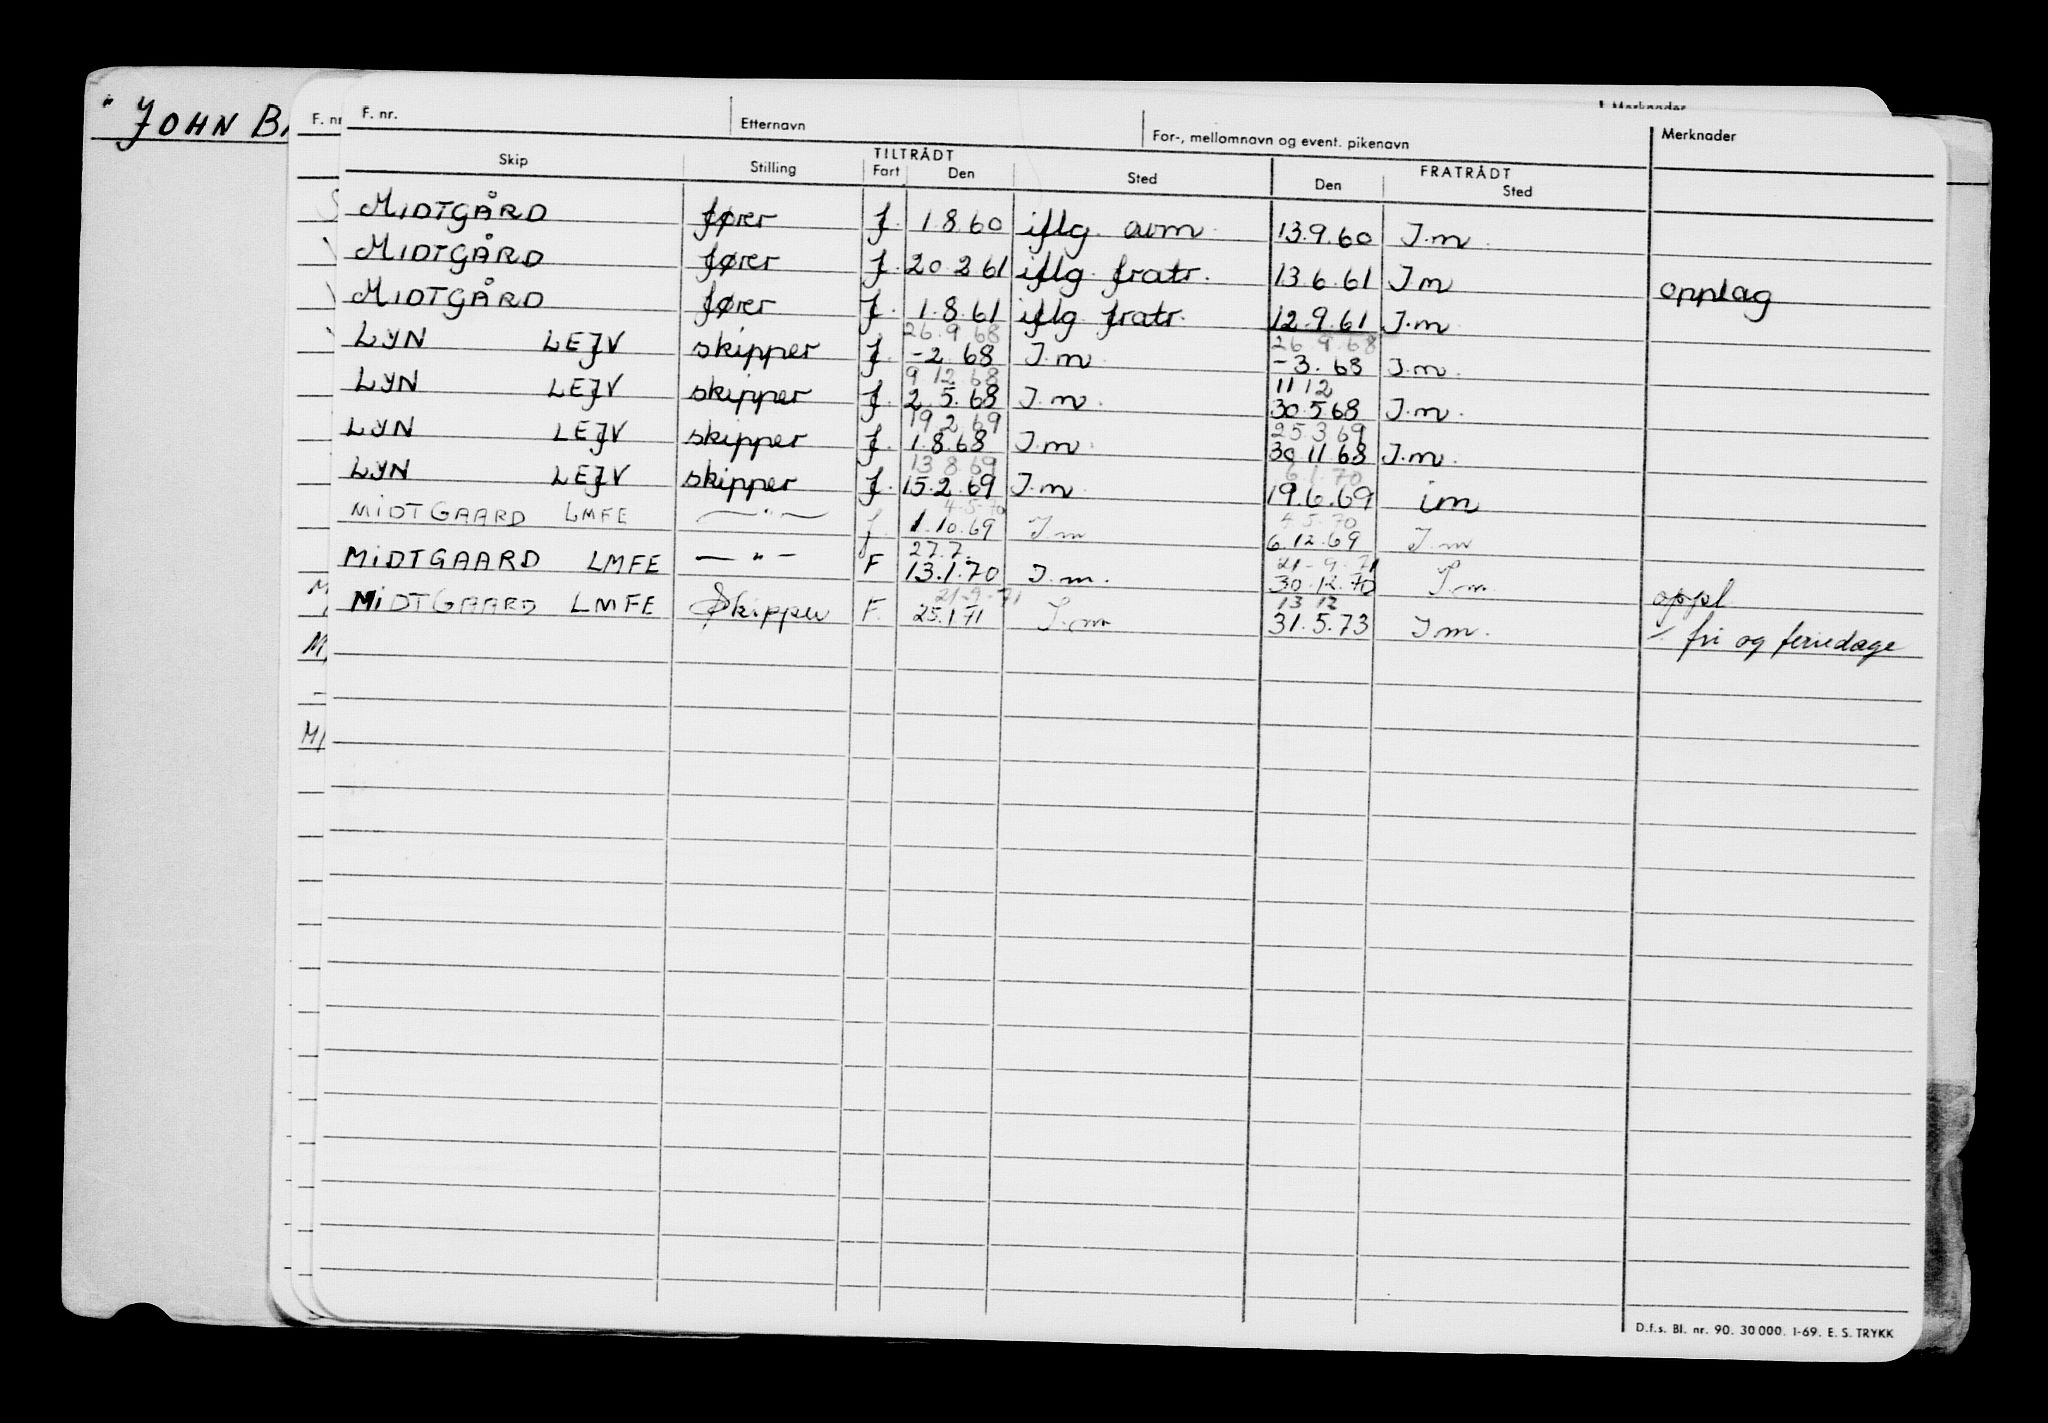 " JOHN BA
F. nr. F. nr. Etternavn For-, mellomnavn og event. pikenavn Merknader
Skip Stilling TILTRÅDT Fart Den Sted FRATRÅDT Den Sted
MIDTGÅRD fører f. 1.8.60 iflg. avm. 13.9.60 I.m.
MIDTGÅRD fører f. 20.2.61 iflg. fratr. 13.6.61 I m opplag
MIDTGÅRD fører f. 1.8.61 iflg. fratr. 12.9.61 I.m.
26.9.68 26.9.68
LYN LEJV skipper f. -2.68 I.m. -3.68 I.m.
9 12.68 11 12
LYN LEJV skipper f. 2.5.68 I.m. 30.5.68 I.m.
19.2.69 25.3.69
LYN LEJV skipper f. 1.8.68 I.m. 30.11.68 I.m.
13.8.69 6.1.70
LYN LEJV skipper f. 15.2.69 I.m. 19.6.69 im
4.5.70 4.5.70
MIDTGAARD LMFE — " — f. 1.10.69 I m 6.12.69 I.m
27.7. 21-9.71
MIDTGAARD LMFE — " — F 13.1.70 I.m. 30.12.70 I.m. oppl
21-9-71 13 12
MIDTGAARD LMFE Skipper F. 25.1.71 I.m 31.5.73 I m. - fri og feriedage
D.f.s. Bl. nr. 90. 30 000. 1-69. E. S. TRYKK